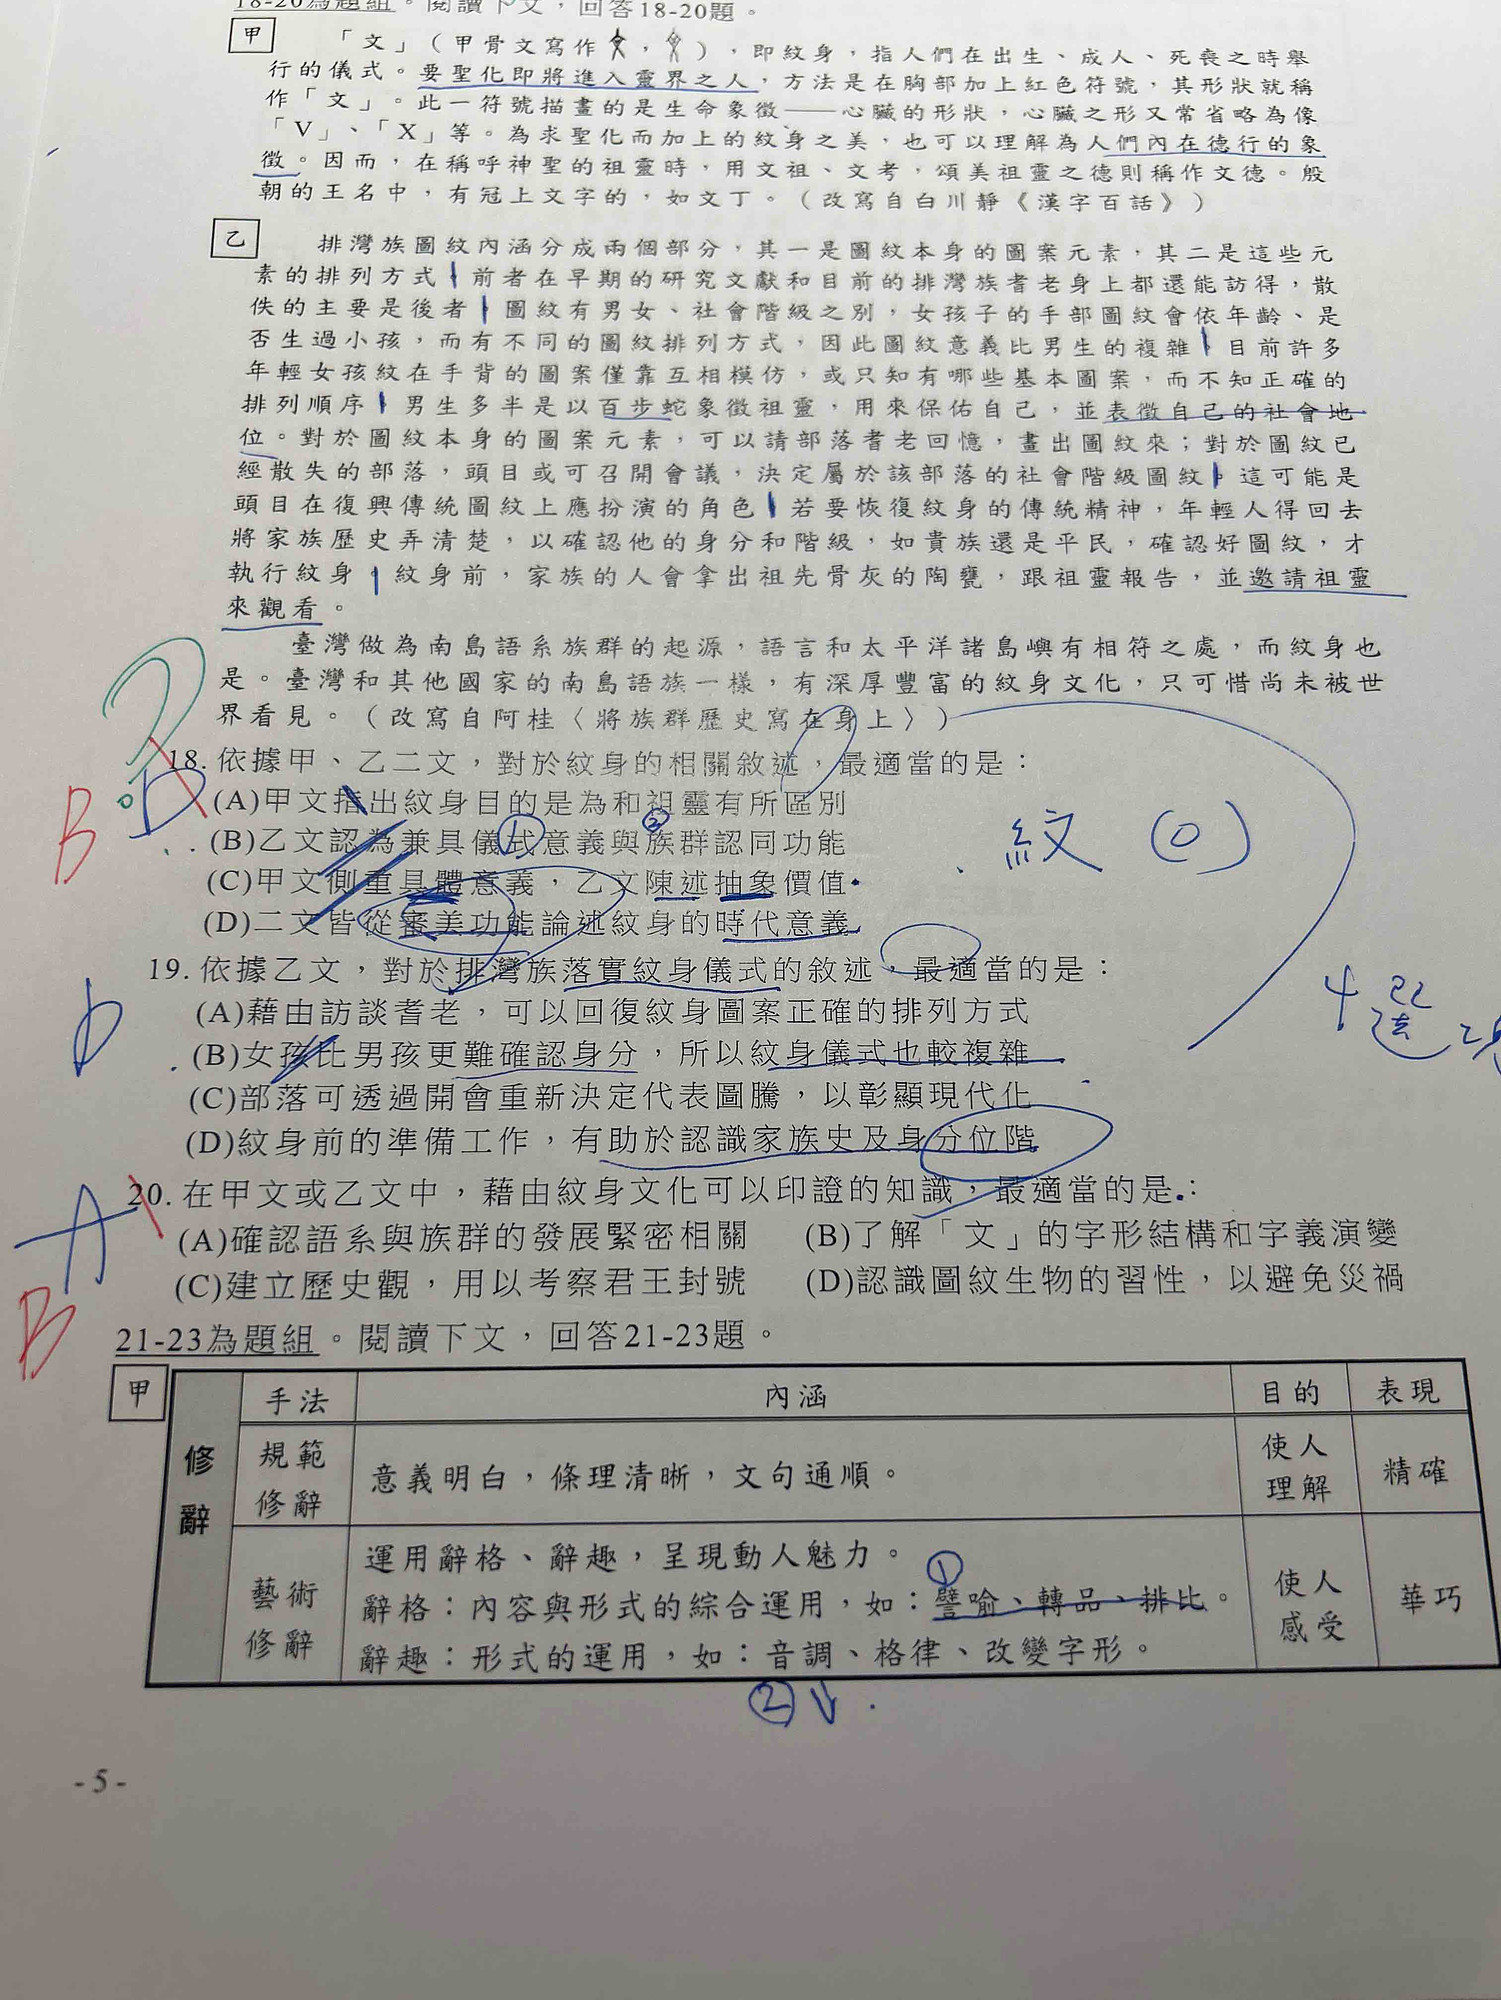 18-20為題組。閱讀下文，回答18-20題。
甲 「文」（甲骨文寫作，），即紋身，指人們在出生、成人、死喪之時舉
行的儀式。要聖化即將進入靈界之人，方法是在胸部加上紅色符號，其形狀就稱
作「文」。此一符號描畫的是生命象徵——心臟的形狀，心臟之形又常省略為像
「V」、「X」等。為求聖化而加上的紋身之美，也可以理解為人們內在德行的象
徵。因而，在稱呼神聖的祖靈時，用文祖、文考，頌美祖靈之德則稱作文德。殷
朝的王名中，有冠上文字的，如文丁。（改寫自白川靜《漢字百話》）
乙 排灣族圖紋內涵分成兩個部分，其一是圖紋本身的圖案元素，其二是這些元
素的排列方式。前者在早期的研究文獻和目前的排灣族耆老身上都還能訪得，散
佚的主要是後者。圖紋有男女、社會階級之別，女孩子的手部圖紋會依年齡、是
否生過小孩，而有不同的圖紋排列方式，因此圖紋意義比男生的複雜。目前許多
年輕女孩紋在手背的圖案僅靠互相模仿，或只知有哪些基本圖案，而不知正確的
排列順序。男生多半是以百步蛇象徵祖靈，用來保佑自己，並表徵自己的社會地
位。對於圖紋本身的圖案元素，可以請部落耆老回憶，畫出圖紋來；對於圖紋已
經散失的部落，頭目或可召開會議，決定屬於該部落的社會階級圖紋。這可能是
頭目在復興傳統圖紋上應扮演的角色。若要恢復紋身的傳統精神，年輕人得回去
將家族歷史弄清楚，以確認他的身分和階級，如貴族還是平民，確認好圖紋，才
執行紋身。紋身前，家族的人會拿出祖先骨灰的陶甕，跟祖靈報告，並邀請祖靈
來觀看。
臺灣做為南島語系族群的起源，語言和太平洋諸島嶼有相符之處，而紋身也
是。臺灣和其他國家的南島語族一樣，有深厚豐富的紋身文化，只可惜尚未被世
界看見。（改寫自阿桂〈將族群歷史寫在身上〉）
B ? D 18. 依據甲、乙二文，對於紋身的相關敘述，最適當的是：
(A)甲文指出紋身目的是為和祖靈有所區別
(B)乙文認為兼具儀式意義與族群認同功能 ① ②
紋 (0)
(C)甲文側重具體意義，乙文陳述抽象價值
(D)二文皆從審美功能論述紋身的時代意義
D 19. 依據乙文，對於排灣族落實紋身儀式的敘述，最適當的是：
4選
(A)藉由訪談耆老，可以回復紋身圖案正確的排列方式
(B)女孩比男孩更難確認身分，所以紋身儀式也較複雜
(C)部落可透過開會重新決定代表圖騰，以彰顯現代化
(D)紋身前的準備工作，有助於認識家族史及身分位階
A B 20. 在甲文或乙文中，藉由紋身文化可以印證的知識，最適當的是：
(A)確認語系與族群的發展緊密相關 (B)了解「文」的字形結構和字義演變
(C)建立歷史觀，用以考察君王封號 (D)認識圖紋生物的習性，以避免災禍
21-23為題組。閱讀下文，回答21-23題。
甲
修辭 手法 內涵 目的 表現
規範修辭 意義明白，條理清晰，文句通順。 使人理解 精確
藝術修辭 運用辭格、辭趣，呈現動人魅力。 使人感受 華巧
①
辭格：內容與形式的綜合運用，如：譬喻、轉品、排比。
辭趣：形式的運用，如：音調、格律、改變字形。
②
- 5 -